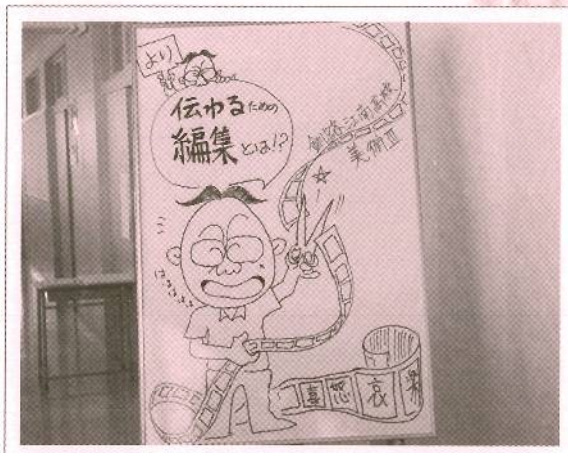 より
伝わるための
編集とは!?
釧路江南高校
美術III
喜怒哀楽